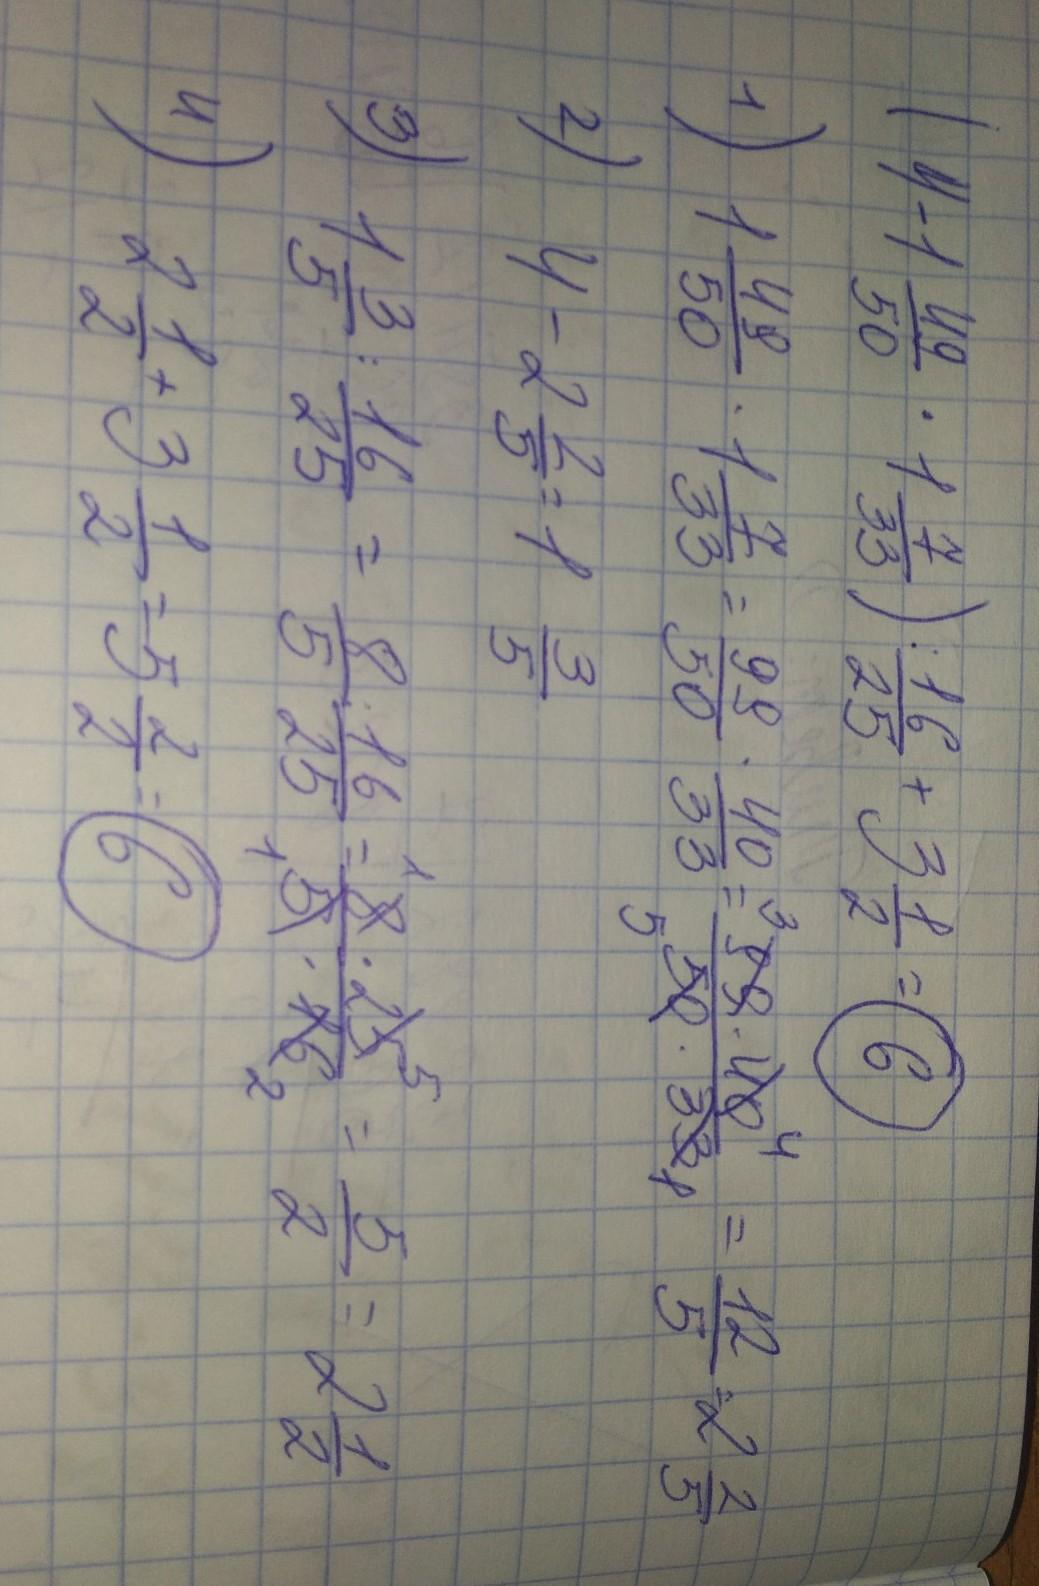 (4 - 1 49/50 · 1 7/33) : 16/25 + 3 1/2 = 6
1) 1 49/50 · 1 7/33 = 99/50 · 40/33 = 99 3 · 40 4 / 50 5 · 33 1 = 12/5 = 2 2/5
2) 4 - 2 2/5 = 1 3/5
3) 1 3/5 : 16/25 = 8/5 : 16/25 = 8 1 · 25 5 / 5 1 · 16 2 = 5/2 = 2 1/2
4) 2 1/2 + 3 1/2 = 5 2/2 = 6